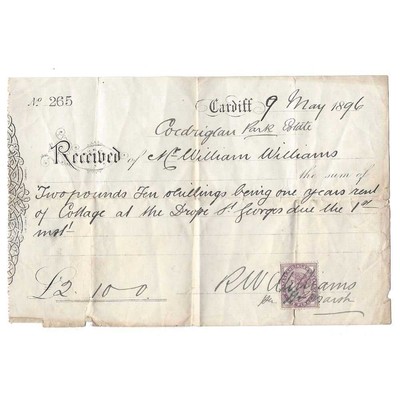 No 265
Cardiff 9 May 1896
Coedriglan Park Estate
Received of Mr William Williams
the sum of
Two pounds Ten shillings being one years rent
of Cottage at the Drope St Georges due the 1st
inst
£2. 10 0.
R W Williams